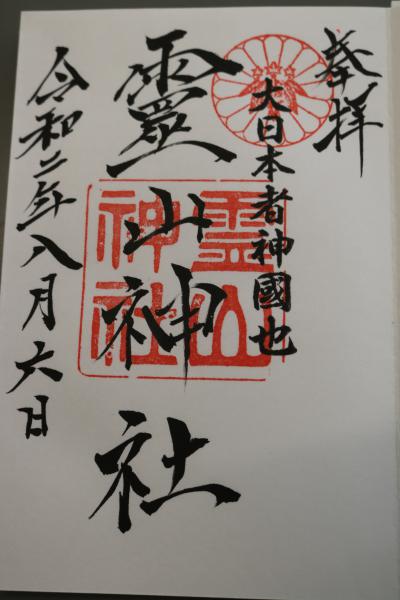 奉拝
大日本者神國也
靈山神社
霊山
神社
令和二年八月六日